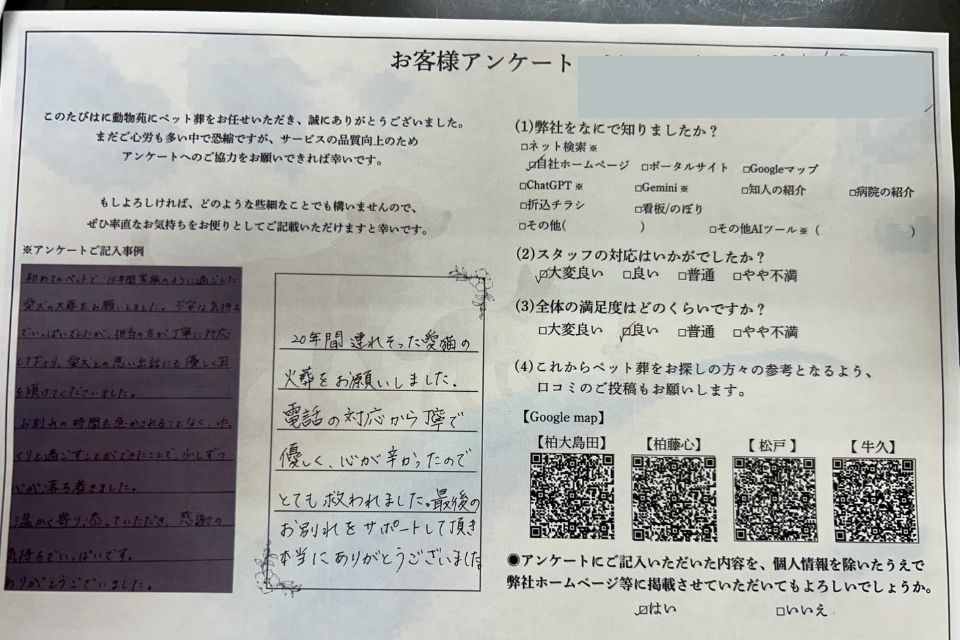 お客様アンケート
このたびはに動物苑にペット葬をお任せいただき、誠にありがとうございました。
まだご心労も多い中で恐縮ですが、サービスの品質向上のため
アンケートへのご協力をお願いできれば幸いです。
もしよろしければ、どのような些細なことでも構いませんので、
ぜひ率直なお気持ちをお便りとしてご記載いただけますと幸いです。
※アンケートご記入事例
初めてのペットで、15年間家族のように過ごした
愛犬の火葬をお願いしました。不安な気持ち
でいっぱいでしたが、担当の方が丁寧に対応
して下さり、愛犬との思い出話にも優しく耳
を傾けてくださいました。
お別れの時間も急かされることなく、ゆっ
くりと過ごすことができたことで、少しずつ
心が落ち着きました。
温かく寄り添っていただき、感謝の
気持ちでいっぱいです。
ありがとうございました。
20年間連れそった愛猫の
火葬をお願いしました。
電話の対応から丁寧で
優しく、心が辛かったので
とても救われました。最後の
お別れをサポートして頂き
本当にありがとうございました
(1)弊社をなにで知りましたか？
□ネット検索※
☑自社ホームページ □ポータルサイト □Googleマップ
□ChatGPT※ □Gemini※ □知人の紹介 □病院の紹介
□折込チラシ □看板/のぼり
□その他( ) □その他AIツール※（ ）
(2)スタッフの対応はいかがでしたか？
☑大変良い □良い □普通 □やや不満
(3)全体の満足度はどのくらいですか？
□大変良い ☑良い □普通 □やや不満
(4)これからペット葬をお探しの方々の参考となるよう、
口コミのご投稿もお願いします。
【Google map】
【柏大島田】 【柏藤心】 【松戸】 【牛久】
●アンケートにご記入いただいた内容を、個人情報を除いたうえで
弊社ホームページ等に掲載させていただいてもよろしいでしょうか。
☑はい □いいえ